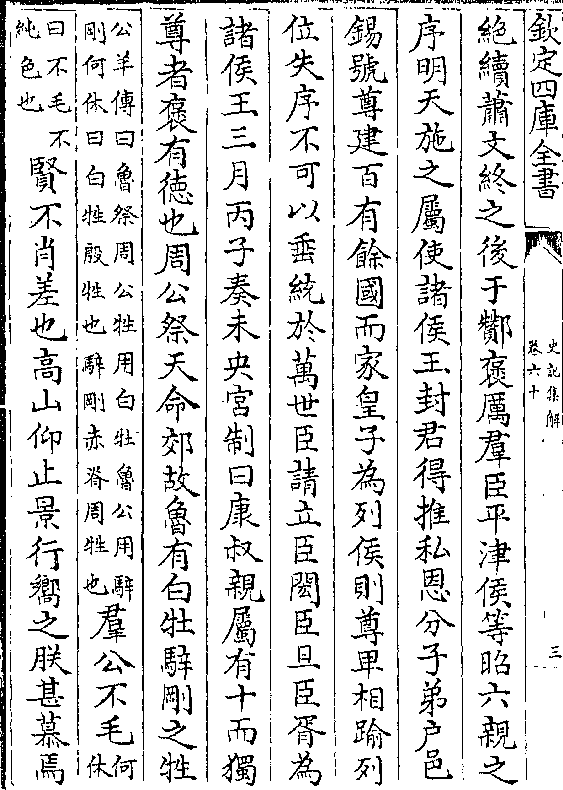 欽定四庫全書
史記集解
卷六十
三
絶續蕭文終之後于酇褒厲羣臣平津侯等昭六親之
序明天施之屬使諸侯王封君得推私恩分子弟戶邑
錫號尊建百有餘國而家皇子為列侯則尊卑相踰列
位失序不可以垂統於萬世臣請立臣閎臣旦臣胥為
諸侯王三月丙子奏未央宮制曰康叔親屬有十而獨
尊者褒有徳也周公祭天命郊故魯有白牡騂剛之牲
公羊傳曰魯祭周公牲用白牡魯公用騂
剛何休曰白牲殷牲也騂剛赤脊周牲也
羣公不毛
何休
曰不毛不
純色也
賢不肖差也高山仰止景行嚮之朕甚慕焉